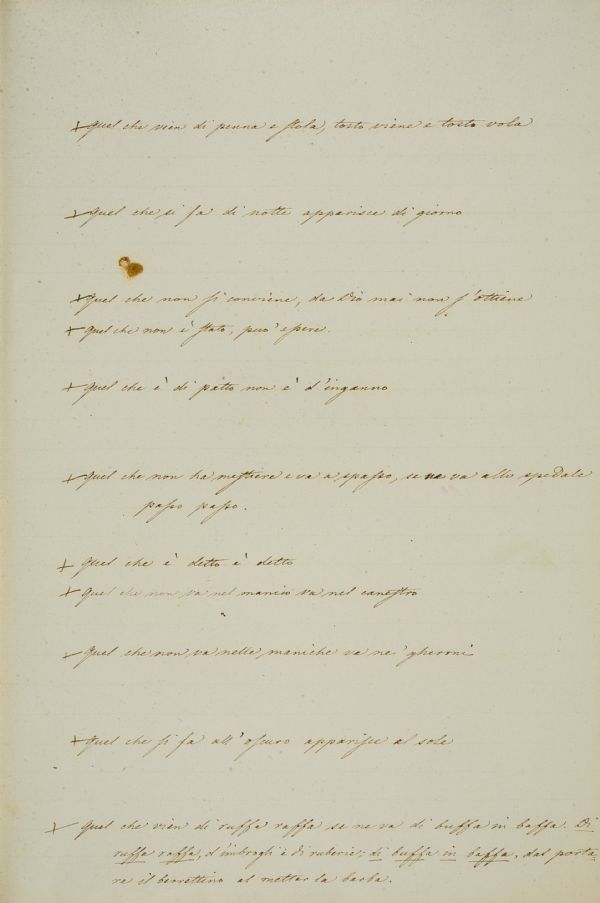 + Quel che vien di penna e stola, tosto viene e tosto vola
+ Quel che si fa di notte apparisce di giorno
+ Quel che non si conviene, da Dio mai non s'ottiene
+ Quel che non è stato, può essere.
+ Quel che è di patto non è d'inganno
+ Quel che non ha mestiere e va a spasso, se ne va allo spedale
passo passo.
+ Quel che è detto è detto
+ Quel che non va nel manico va nel canestro
+ Quel che non va nelle maniche va ne' gheroni
+ Quel che si fa all'oscuro apparisce al sole
+ Quel che vien di ruffa raffa se ne va di buffa in baffa. Di
ruffa raffa, d'imbrogli e di ruberie; di buffa in baffa, dal porta-
re il berrettino al metter la barba.